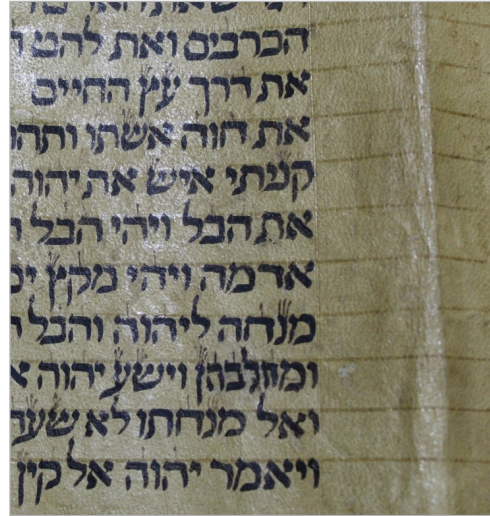 הכרבים ואת להט
את דרך עץ החיים
את חוה אשתו
קניתי איש את יהוה
את הבל ויהי הבל
אדמה ויהי מקץ
מנחה ליהוה והבל
ומחלבהן וישע יהוה
ואל מנחתו לא שעה
ויאמר יהוה אל קין